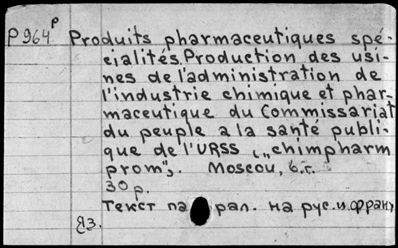 P 964 P Produits pharmaceutiques spé-
cialités. Production des usi-
nes de l'administration de
l'industrie chimique et phar-
maceutique du Commissariat
du peuple a la santé publi-
que de l'URSS („chimpharm
prom"). Moscou, б.г.
30 р.
Текст па рал. на рус. и франц
Яз.